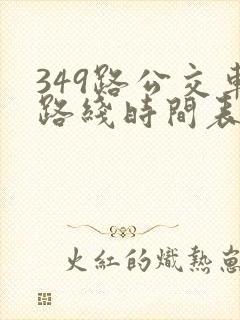 349路公交車
路綫時間表
火紅的熾熱